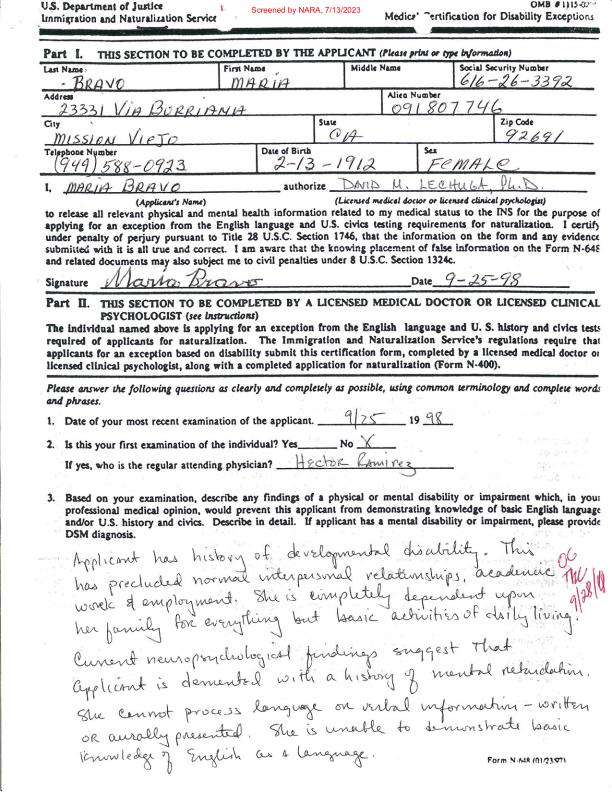 U.S. Department of Justice
Immigration and Naturalization Service
Screened by NARA, 7/13/2023
OMB # 1115-02
Medical Certification for Disability Exceptions
Part I. THIS SECTION TO BE COMPLETED BY THE APPLICANT (Please print or type information)
Last Name First Name Middle Name Social Security Number
BRAVO MARIA 616-26-3392
Address Alien Number
23331 VIA BURRIANA 091807746
City State Zip Code
MISSION VIEJO CA 92691
Telephone Number Date of Birth Sex
(949) 588-0923 2-13-1912 FEMALE
I, MARIA BRAVO authorize DAVID M. LECHUGA, Ph.D.
(Applicant's Name) (Licensed medical doctor or licensed clinical psychologist)
to release all relevant physical and mental health information related to my medical status to the INS for the purpose of
applying for an exception from the English language and U.S. civics testing requirements for naturalization. I certify
under penalty of perjury pursuant to Title 28 U.S.C. Section 1746, that the information on the form and any evidence
submitted with it is all true and correct. I am aware that the knowing placement of false information on the Form N-648
and related documents may also subject me to civil penalties under 8 U.S.C. Section 1324c.
Signature Maria Bravo Date 9-25-98
Part II. THIS SECTION TO BE COMPLETED BY A LICENSED MEDICAL DOCTOR OR LICENSED CLINICAL
PSYCHOLOGIST (see instructions)
The individual named above is applying for an exception from the English language and U. S. history and civics tests
required of applicants for naturalization. The Immigration and Naturalization Service's regulations require that
applicants for an exception based on disability submit this certification form, completed by a licensed medical doctor or
licensed clinical psychologist, along with a completed application for naturalization (Form N-400).
Please answer the following questions as clearly and completely as possible, using common terminology and complete words
and phrases.
1. Date of your most recent examination of the applicant. 9/25 19 98
2. Is this your first examination of the individual? Yes No X
If yes, who is the regular attending physician? Hector Ramirez
3. Based on your examination, describe any findings of a physical or mental disability or impairment which, in your
professional medical opinion, would prevent this applicant from demonstrating knowledge of basic English language
and/or U.S. history and civics. Describe in detail. If applicant has a mental disability or impairment, please provide
DSM diagnosis.
Applicant has history of developmental disability. This
has precluded normal interpersonal relationships, academic
work & employment. She is completely dependent upon
her family for everything but basic activities of daily living.
9/28/98
Current neuropsychological findings suggest that
applicant is demented with a history of mental retardation.
She cannot process language or verbal information – written
or aurally presented. She is unable to demonstrate basic
knowledge of English as a language.
Form N-648 (01/23/97)